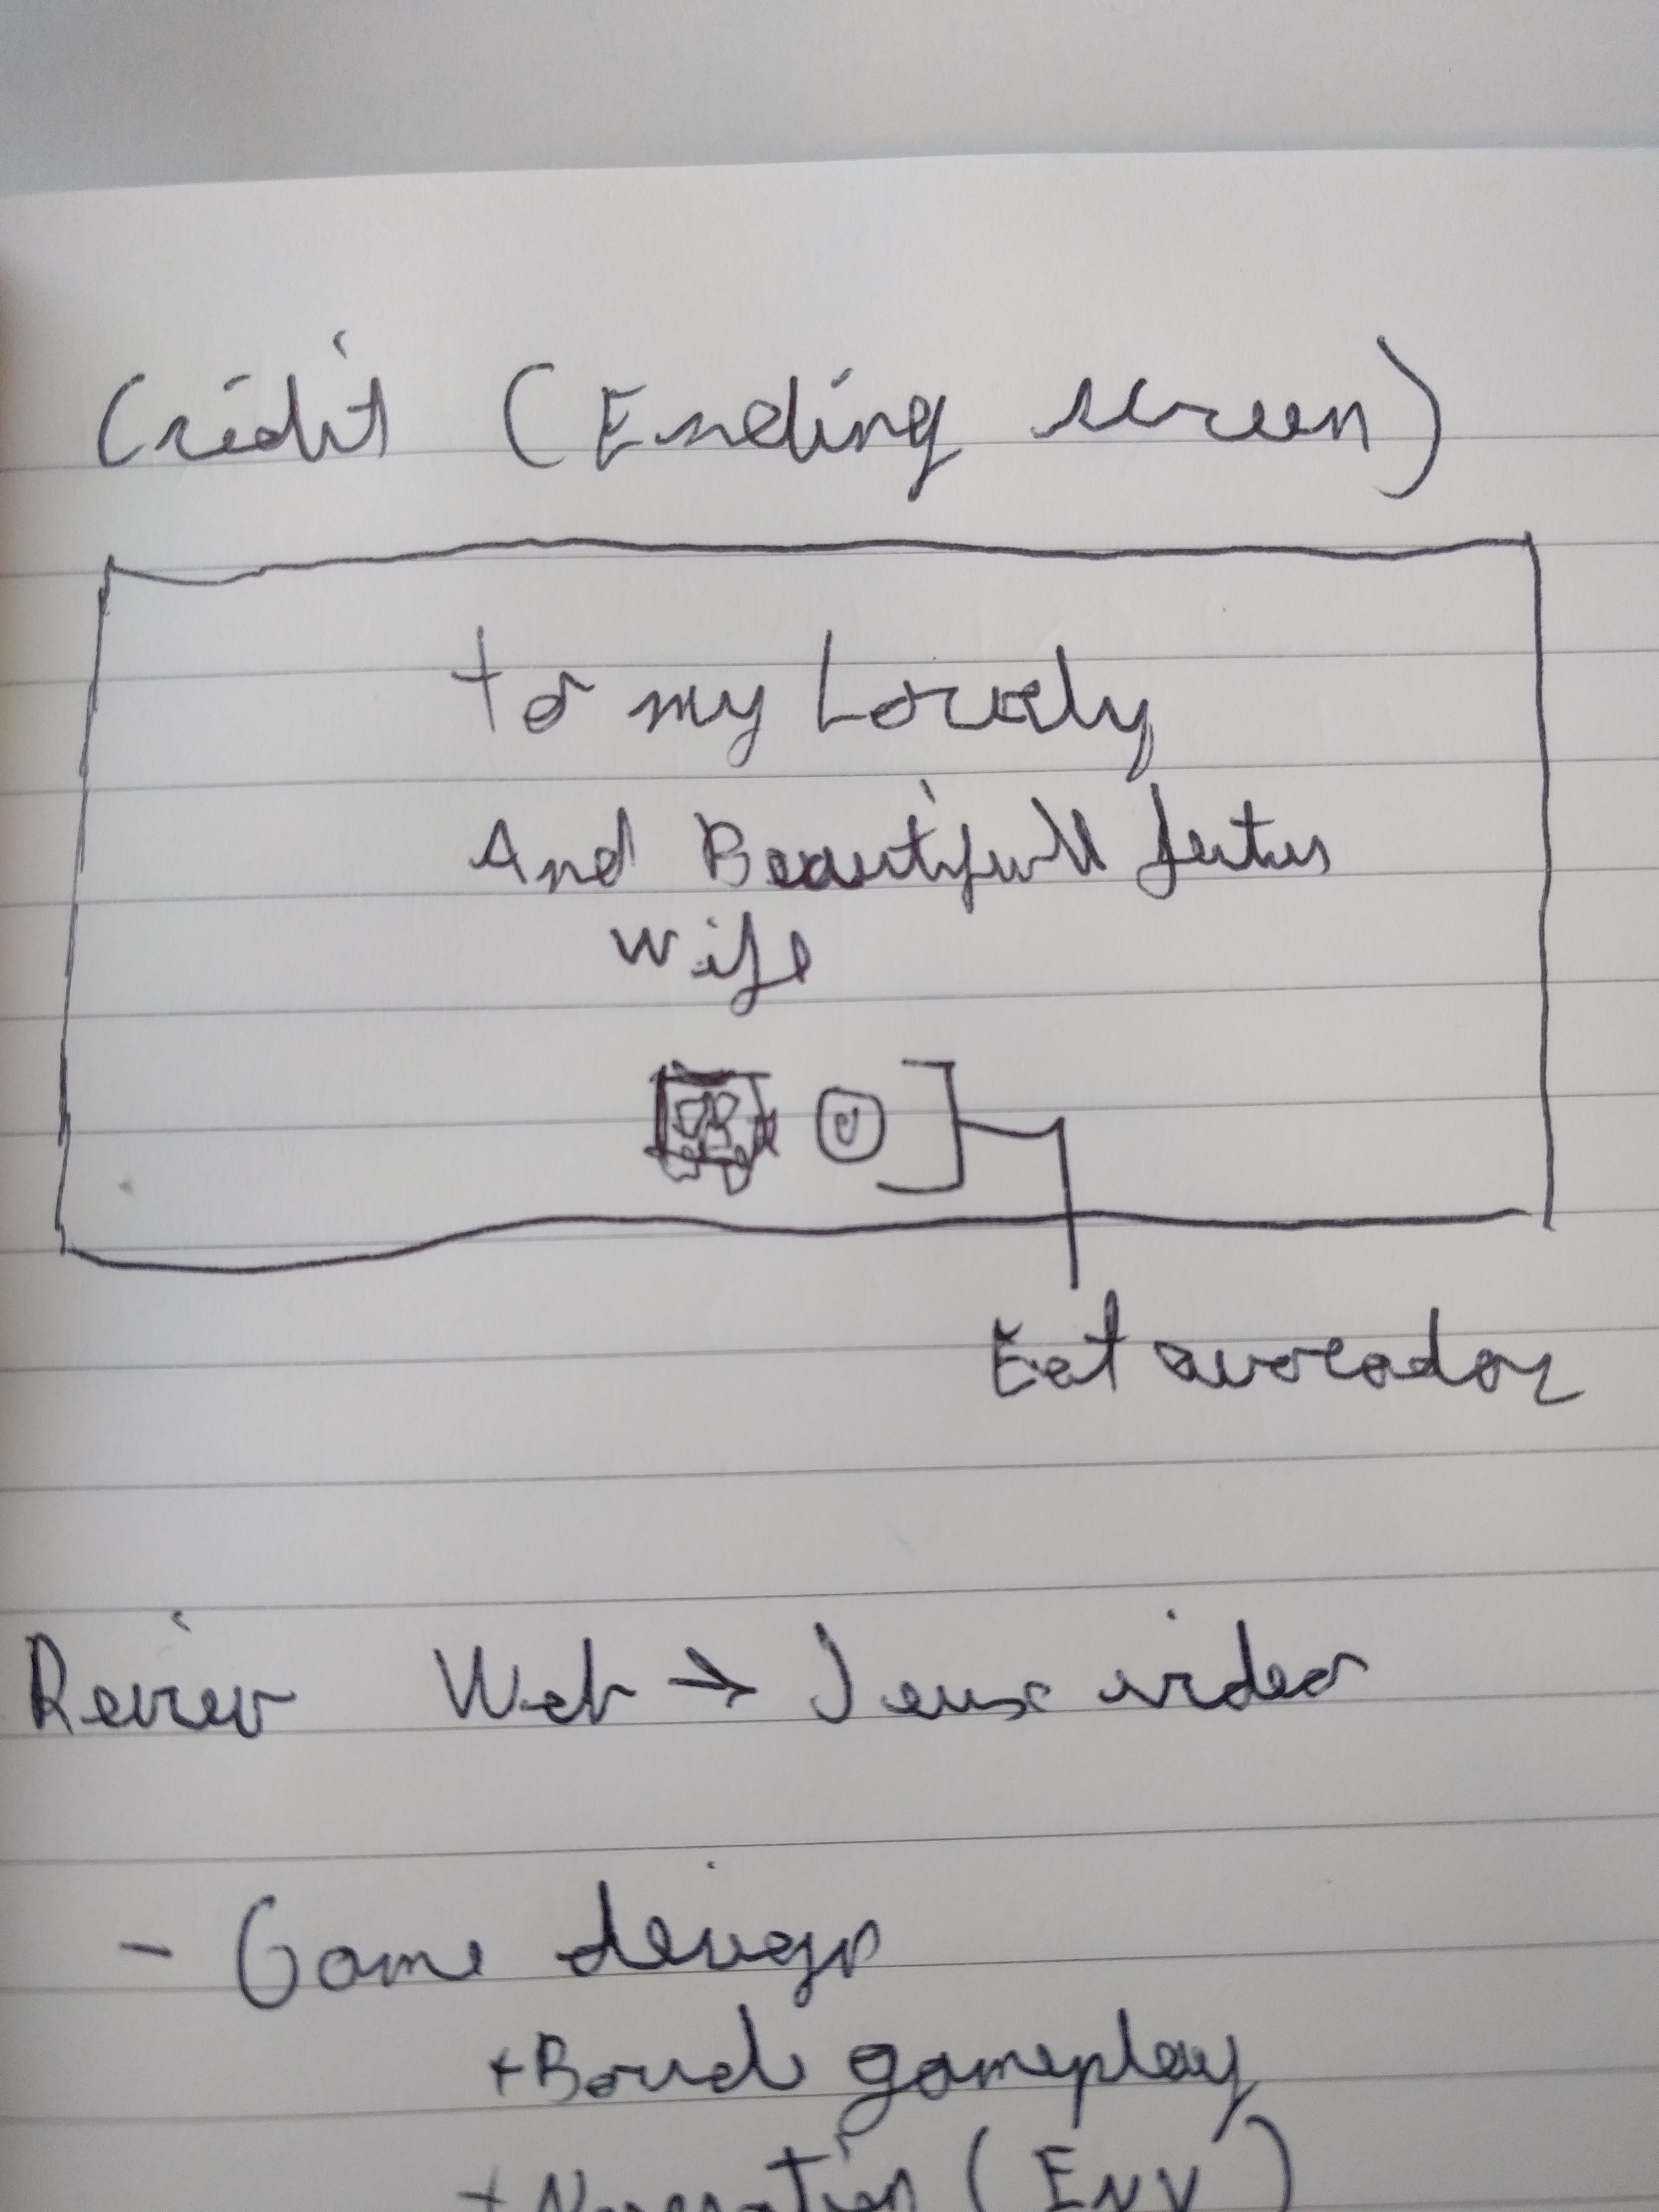 Crédit (Ending screen)
to my Lovely
And Beautifull futur
wife
Eat avocados
Review Web → Jeux video
- Game design
+ Boucle gameplay
+ Narration (ENV)